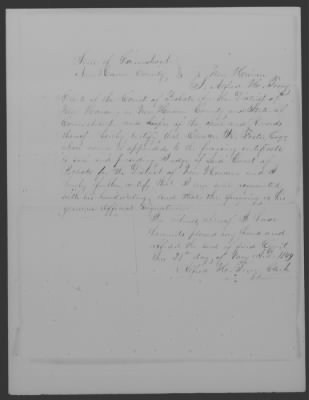 State of Connecticut
New Haven County, ss New Haven
I, Alfred H. Terry
Clerk of the Court of Probate for the District of
New Haven in New Haven County and State of
Connecticut and Keeper of the Seal and Records
thereof hereby certify that Eleazer K. Foster Esqr
whose name is appended to the foregoing certificate
is and presiding Judge of said Court of
Probate for the District of New Haven and I
hereby further certify that I am well acquainted
with his handwriting and that the foregoing is his
genuine official signature
In witness whereof I have
hereunto placed my hand and
affixed the seal of said Court
this 21st day of May A.D. 1849
Alfred H. Terry Clerk